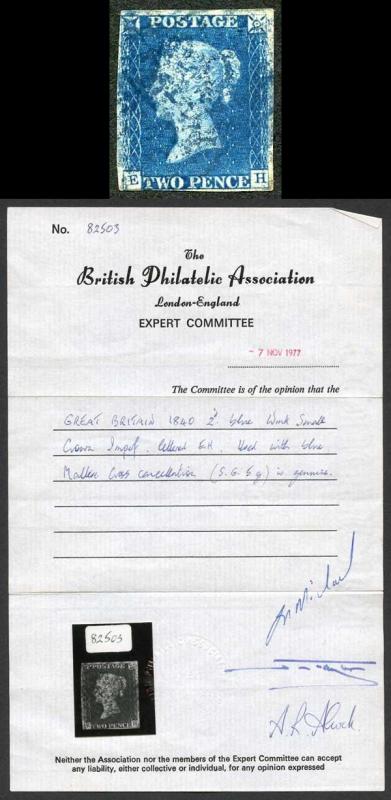 POSTAGE
E TWO PENCE H
No. 82503
The
British Philatelic Association
London-England
EXPERT COMMITTEE
- 7 NOV 1977
The Committee is of the opinion that the
GREAT BRITAIN 1840 2d blue Wmk Small
Crown Imperf. lettered E.H. Used with blue
Maltese Cross cancellation (S.G. 5 g) is genuine.
82503
POSTAGE
TWO PENCE
Neither the Association nor the members of the Expert Committee can accept
any liability, either collective or individual, for any opinion expressed